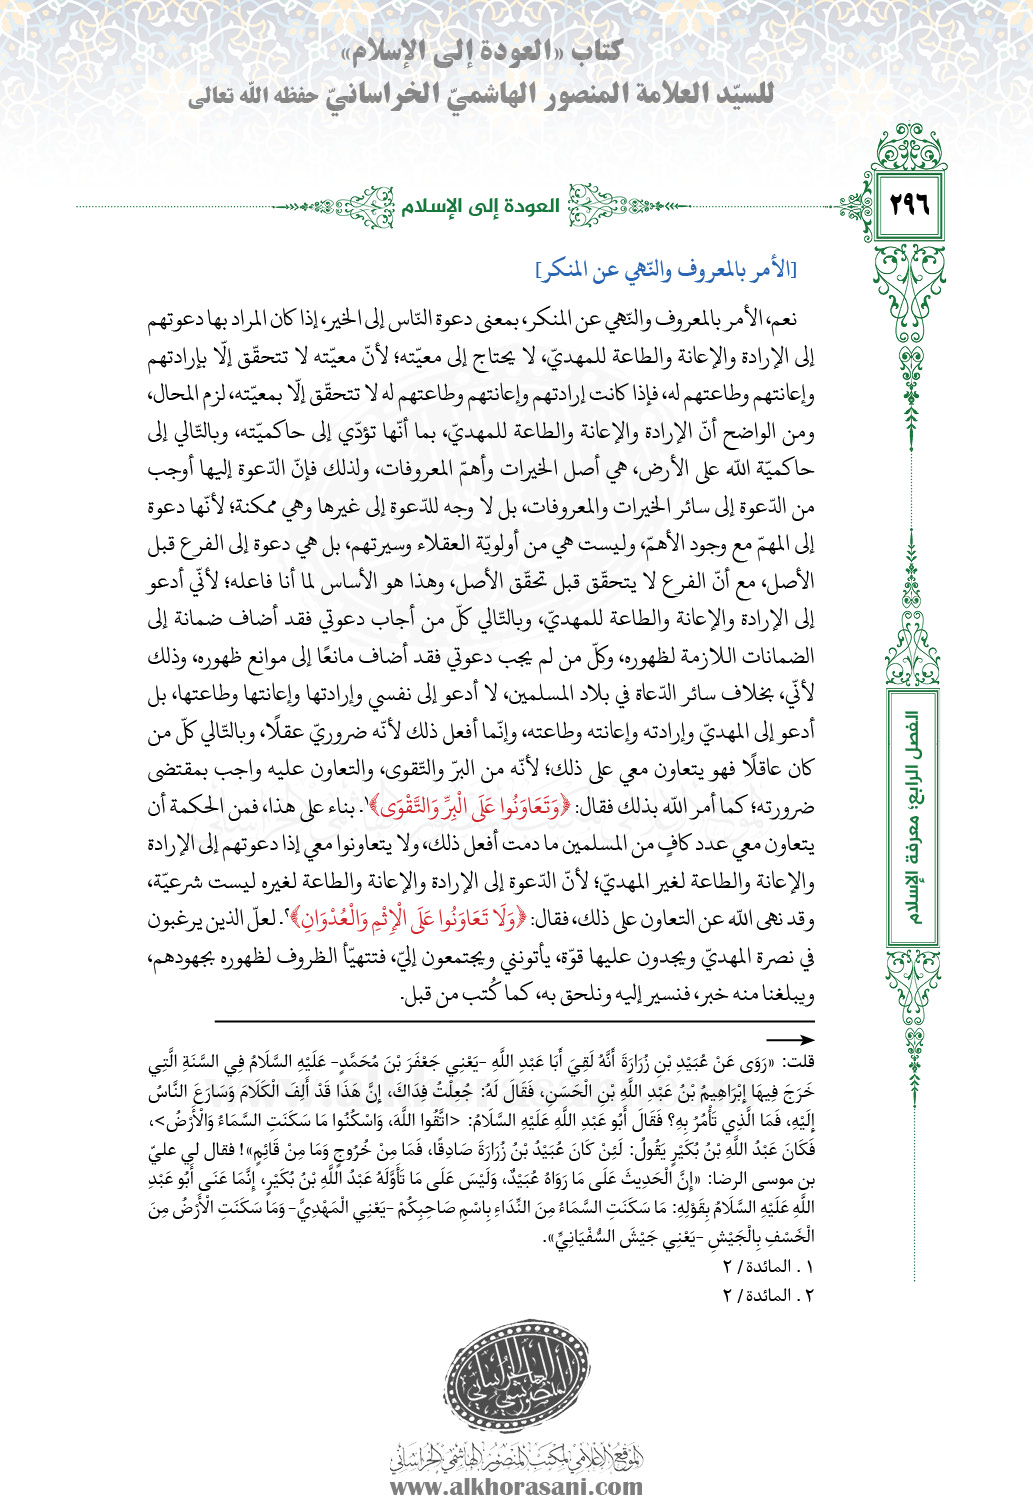 كتاب «العودة إلى الإسلام»
للسيّد العلامة المنصور الهاشميّ الخراسانيّ حفظه الله تعالى
٢٩٦
العودة إلى الإسلام
[الأمر بالمعروف والنّهي عن المنكر]
نعم، الأمر بالمعروف والنّهي عن المنكر، بمعنى دعوة النّاس إلى الخير، إذا كان المراد بها دعوتهم
إلى الإرادة والإعانة والطاعة للمهديّ، لا يحتاج إلى معيّته؛ لأنّ معيّته لا تتحقّق إلّا بإرادتهم
وإعانتهم وطاعتهم له، فإذا كانت إرادتهم وإعانتهم وطاعتهم له لا تتحقّق إلّا بمعيّته، لزم المحال،
ومن الواضح أنّ الإرادة والإعانة والطاعة للمهديّ، بما أنّها تؤدّي إلى حاكميّته، وبالتّالي إلى
حاكميّة الله على الأرض، هي أصل الخيرات وأهمّ المعروفات، ولذلك فإنّ الدّعوة إليها أوجب
من الدّعوة إلى سائر الخيرات والمعروفات، بل لا وجه للدّعوة إلى غيرها وهي ممكنة؛ لأنّها دعوة
إلى المهمّ مع وجود الأهمّ، وليست هي من أولويّة العقلاء وسيرتهم، بل هي دعوة إلى الفرع قبل
الأصل، مع أنّ الفرع لا يتحقّق قبل تحقّق الأصل، وهذا هو الأساس لما أنا فاعله؛ لأنّي أدعو
إلى الإرادة والإعانة والطاعة للمهديّ، وبالتّالي كلّ من أجاب دعوتي فقد أضاف ضمانة إلى
الضمانات اللازمة لظهوره، وكلّ من لم يجب دعوتي فقد أضاف مانعًا إلى موانع ظهوره، وذلك
لأنّي، بخلاف سائر الدّعاة في بلاد المسلمين، لا أدعو إلى نفسي وإرادتها وإعانتها وطاعتها، بل
أدعو إلى المهديّ وإرادته وإعانته وطاعته، وإنّما أفعل ذلك لأنّه ضروريّ عقلًا، وبالتّالي كلّ من
كان عاقلًا فهو يتعاون معي على ذلك؛ لأنّه من البرّ والتّقوى، والتّعاون عليه واجب بمقتضى
ضرورته؛ كما أمر الله بذلك فقال: ﴿وَتَعَاوَنُوا عَلَى الْبِرِّ وَالتَّقْوَى﴾١. بناء على هذا، فمن الحكمة أن
يتعاون معي عدد كافٍ من المسلمين ما دمت أفعل ذلك، ولا يتعاونوا معي إذا دعوتهم إلى الإرادة
والإعانة والطاعة لغير المهديّ؛ لأنّ الدّعوة إلى الإرادة والإعانة والطاعة لغيره ليست شرعيّة،
وقد نهى الله عن التعاون على ذلك، فقال: ﴿وَلَا تَعَاوَنُوا عَلَى الْإِثْمِ وَالْعُدْوَانِ﴾٢. لعلّ الذين يرغبون
في نصرة المهديّ ويجدون عليها قوّة، يأتونني ويجتمعون إليّ، فتتهيّأ الظروف لظهوره بجهودهم،
ويبلغنا منه خبر، فنسير إليه ونلحق به، كما كُتب من قبل.
قلت: «رَوَى عَنْ عُبَيْدِ بْنِ زُرَارَةَ أَنَّهُ لَقِيَ أَبَا عَبْدِ اللَّهِ -يَعْنِي جَعْفَرَ بْنَ مُحَمَّدٍ- عَلَيْهِ السَّلَامُ فِي السَّنَةِ الَّتِي
خَرَجَ فِيهَا إِبْرَاهِيمُ بْنُ عَبْدِ اللَّهِ بْنِ الْحَسَنِ، فَقَالَ لَهُ: جُعِلْتُ فِدَاكَ، إِنَّ هَذَا قَدْ أَلِفَ الْكَلَامَ وَسَارَعَ النَّاسُ
إِلَيْهِ، فَمَا الَّذِي تَأْمُرُ بِهِ؟ فَقَالَ أَبُو عَبْدِ اللَّهِ عَلَيْهِ السَّلَامُ: <اتَّقُوا اللَّهَ، وَاسْكُنُوا مَا سَكَنَتِ السَّمَاءُ وَالْأَرْضُ>،
فَكَانَ عَبْدُ اللَّهِ بْنُ بُكَيْرٍ يَقُولُ: لَئِنْ كَانَ عُبَيْدُ بْنُ زُرَارَةَ صَادِقًا، فَمَا مِنْ خُرُوجٍ وَمَا مِنْ قَائِمٍ»! فقال لي عليّ
بن موسى الرضا: «إِنَّ الْحَدِيثَ عَلَى مَا رَوَاهُ عُبَيْدٌ، وَلَيْسَ عَلَى مَا تَأَوَّلَهُ عَبْدُ اللَّهِ بْنُ بُكَيْرٍ، إِنَّمَا عَنَى أَبُو عَبْدِ
اللَّهِ عَلَيْهِ السَّلَامُ بِقَوْلِهِ: مَا سَكَنَتِ السَّمَاءُ مِنَ النِّدَاءِ بِاسْمِ صَاحِبِكُمْ -يَعْنِي الْمَهْدِيَّ- وَمَا سَكَنَتِ الْأَرْضُ مِنَ
الْخَسْفِ بِالْجَيْشِ -يَعْنِي جَيْشَ السُّفْيَانِيِّ».
١ . المائدة/ ٢
٢ . المائدة/ ٢
الفصل الرابع؛ معرفة الإسلام
المنصور الهاشمي الخراساني
الموقع الإعلامي لمكتب المنصور الهاشمي الخراساني
www.alkhorasani.com